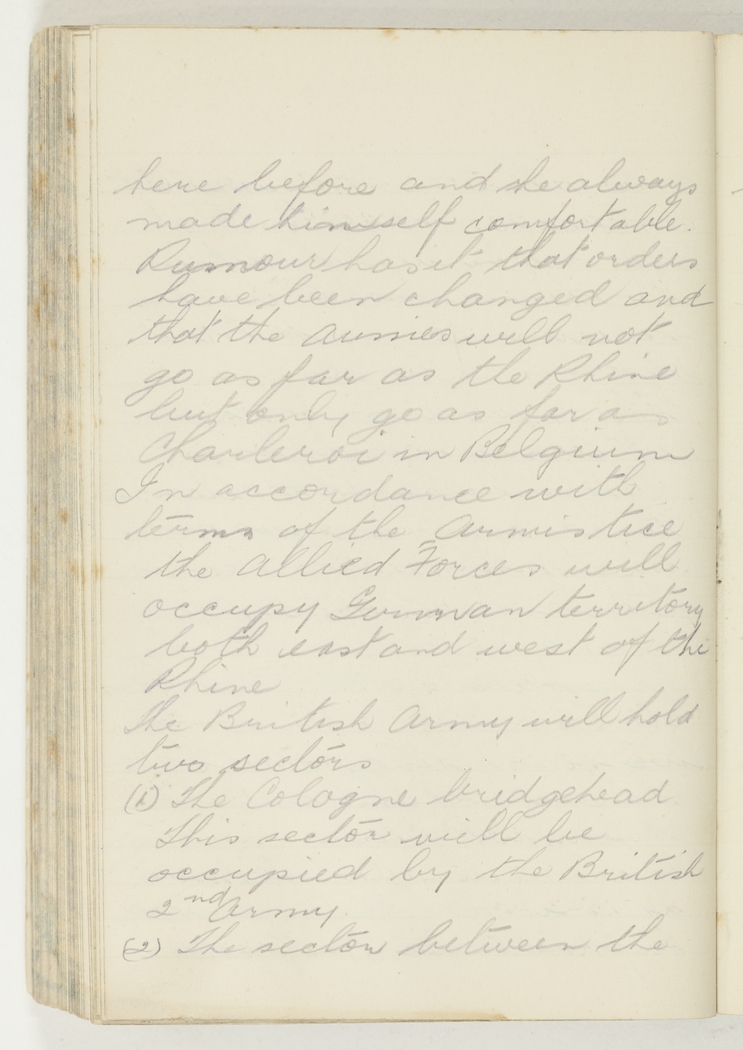 here before and he always
made himself comfortable.
Rumour has it that orders
have been changed and
that the Aussies will not
go as far as the Rhine
but only go as far as
Charleroi in Belgium
In accordance with
terms of the Armistice
the Allied Forces will
occupy German territory
both east and west of the
Rhine
The British Army will hold
two sectors
(1) The Cologne bridgehead
This sector will be
occupied by the British
2nd Army.
(2) The sector between the